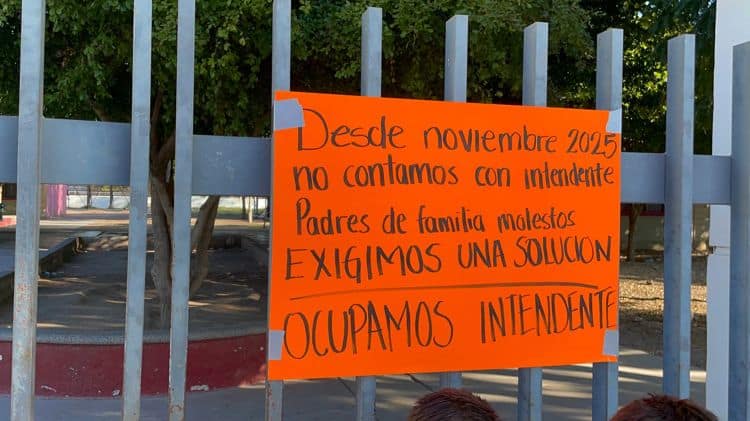 Desde noviembre 2025
no contamos con intendente
Padres de familia molestos
EXIGIMOS UNA SOLUCION
OCUPAMOS INTENDENTE